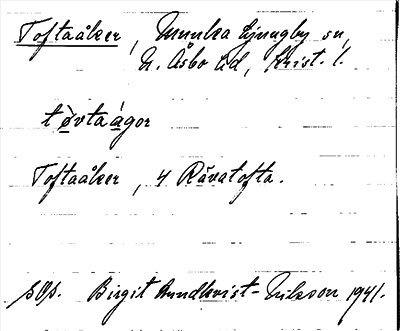 Toftaåker, Munka Ljungby sn,
N. Åsbo hd, Krist. l.
tòvtaágor
Toftaåker, 4 Rävatofta.
Birgit Rundkvist-Eriksson 1941.